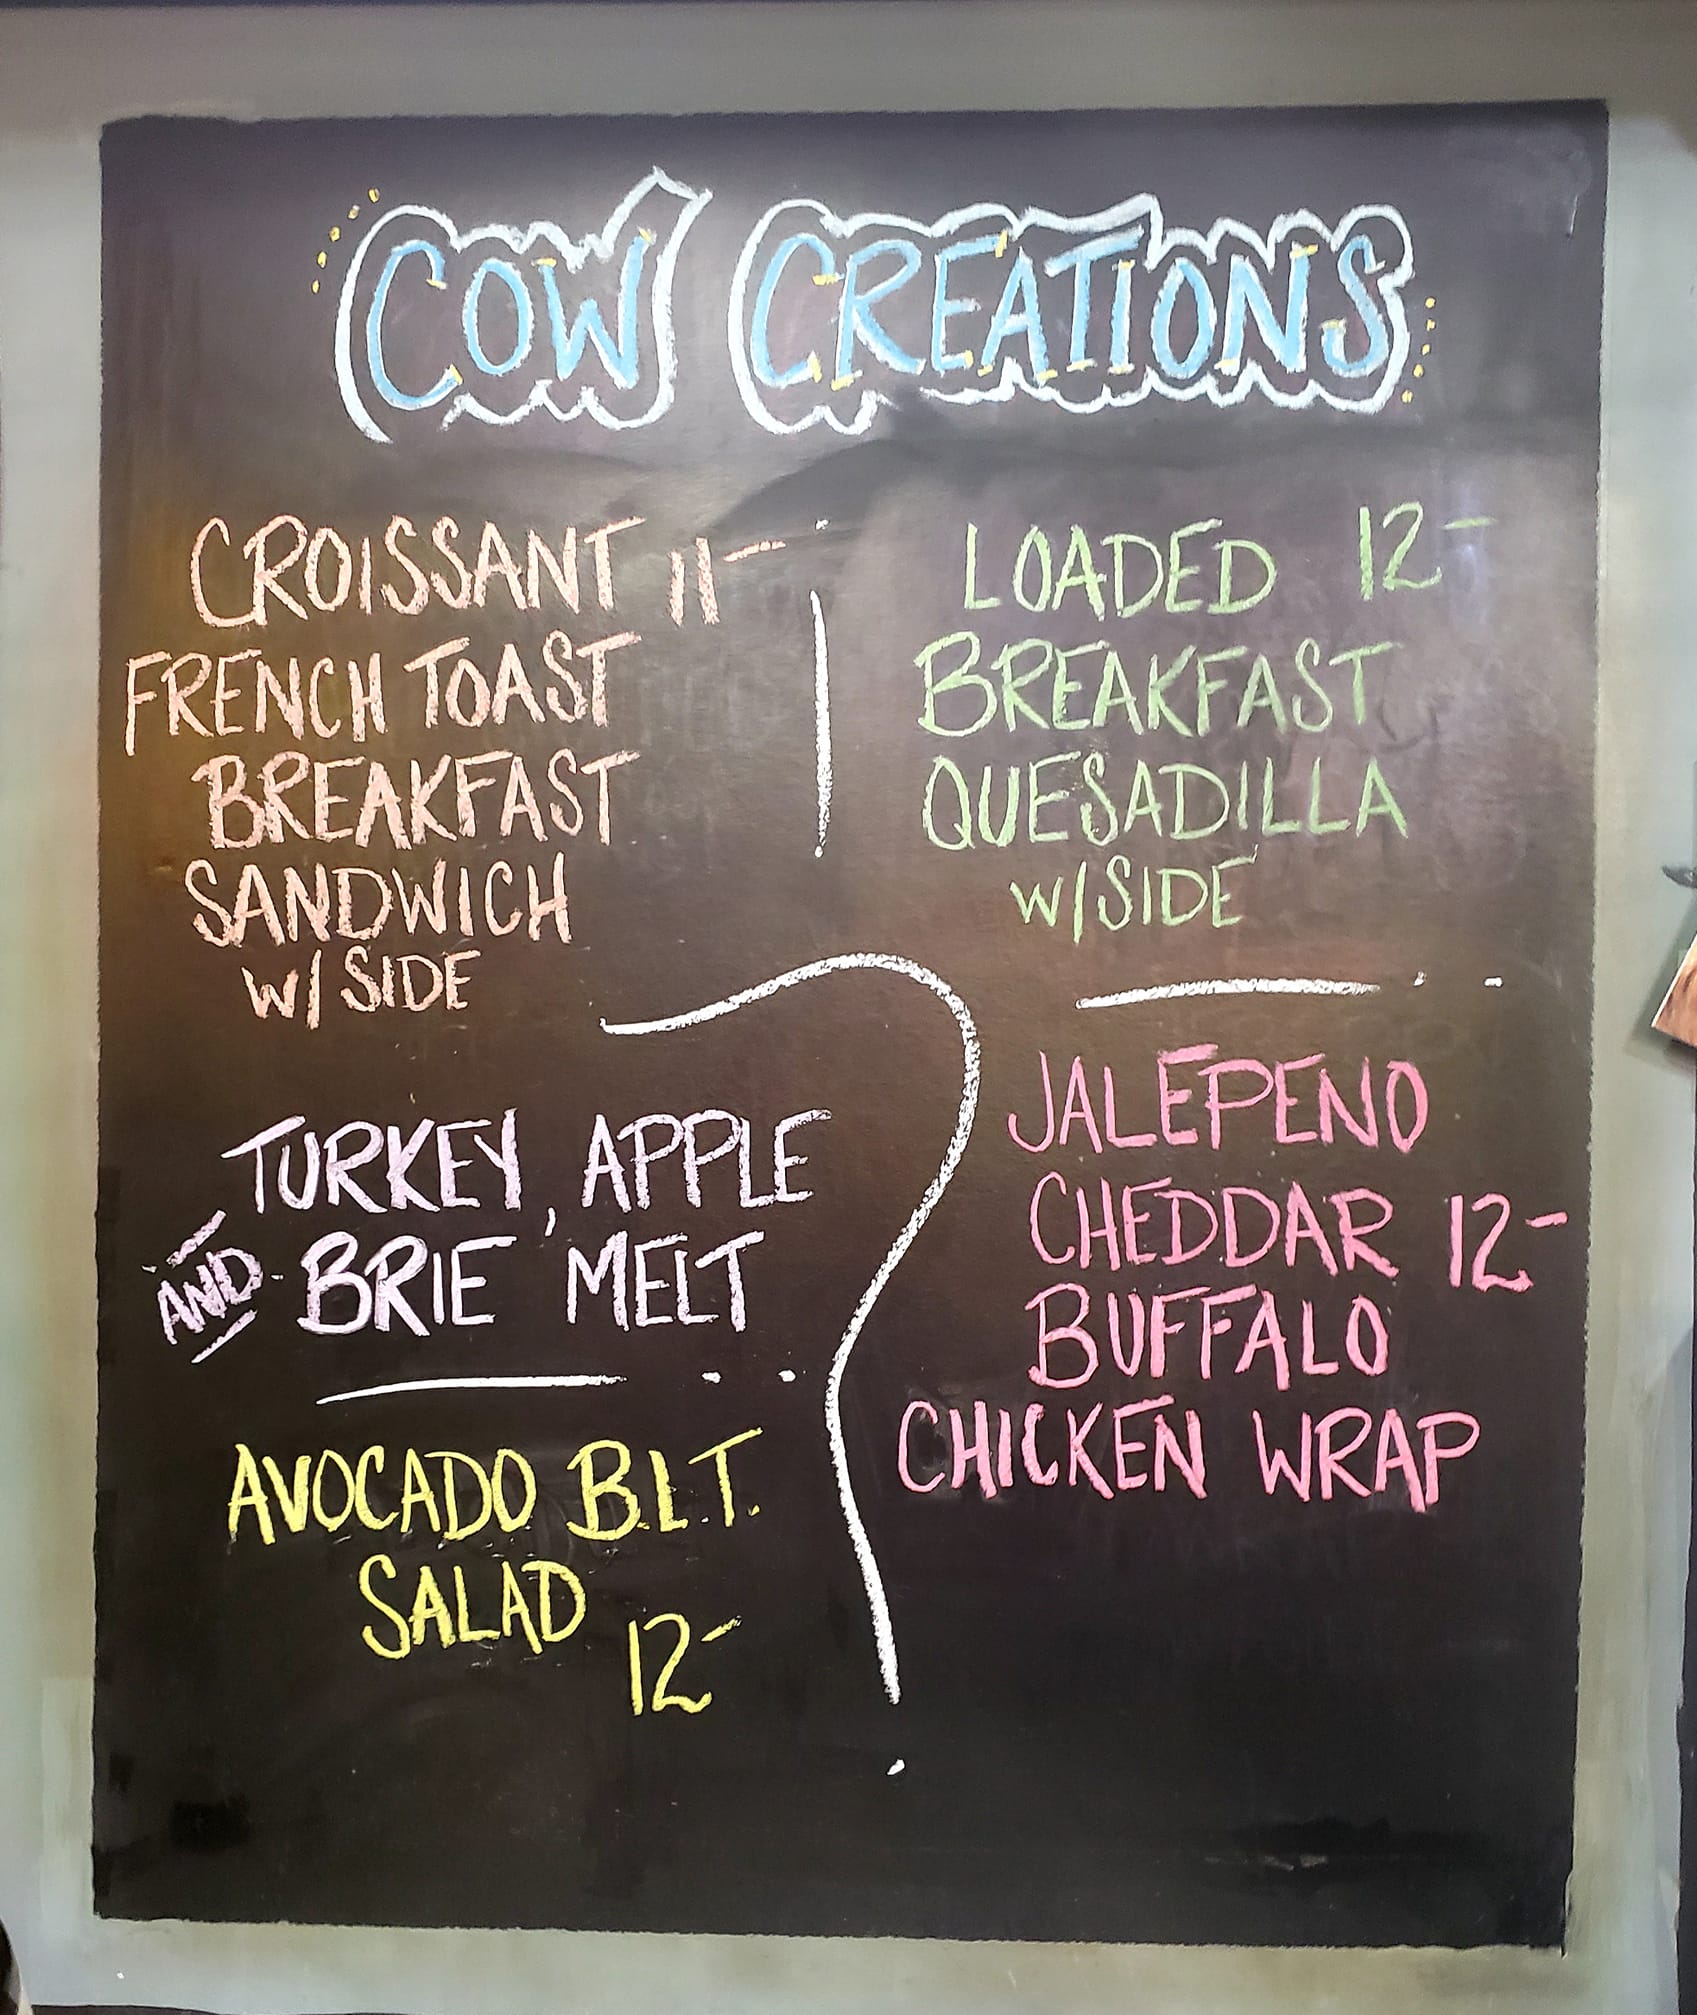 COW CREATIONS
CROISSANT 11-
FRENCH TOAST
BREAKFAST
SANDWICH
W/ SIDE
LOADED 12-
BREAKFAST
QUESADILLA
W/SIDE
TURKEY, APPLE
AND BRIE MELT
AVOCADO B.L.T.
SALAD
12-
JALEPENO
CHEDDAR 12-
BUFFALO
CHICKEN WRAP